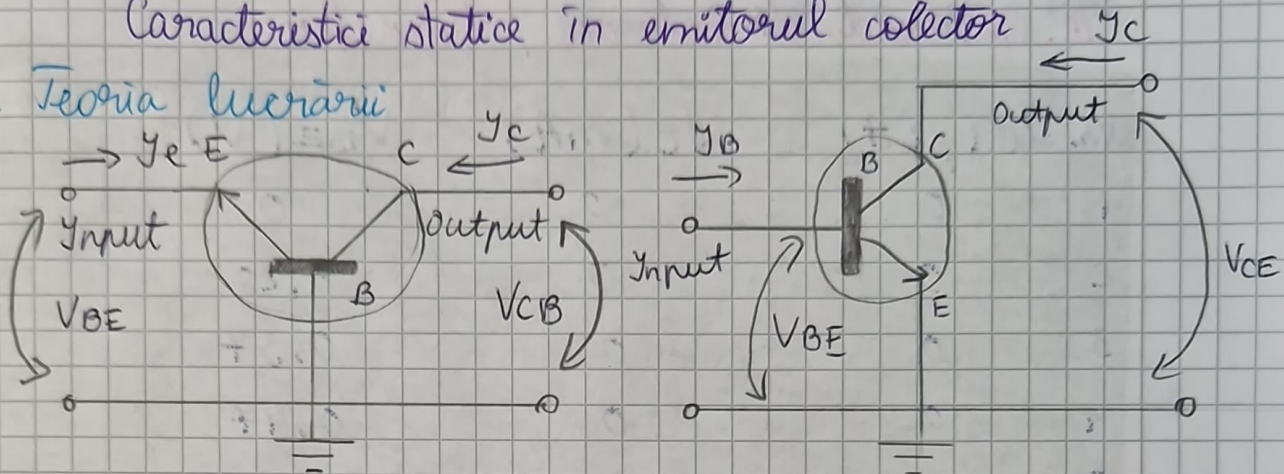 Caracteristici statice în emitorul colector
Teoria lucrării
Ie E
C
Ic
Input
Output
B
VBE
VCB
IB
Input
B
C
E
VBE
Output
Ic
VCE